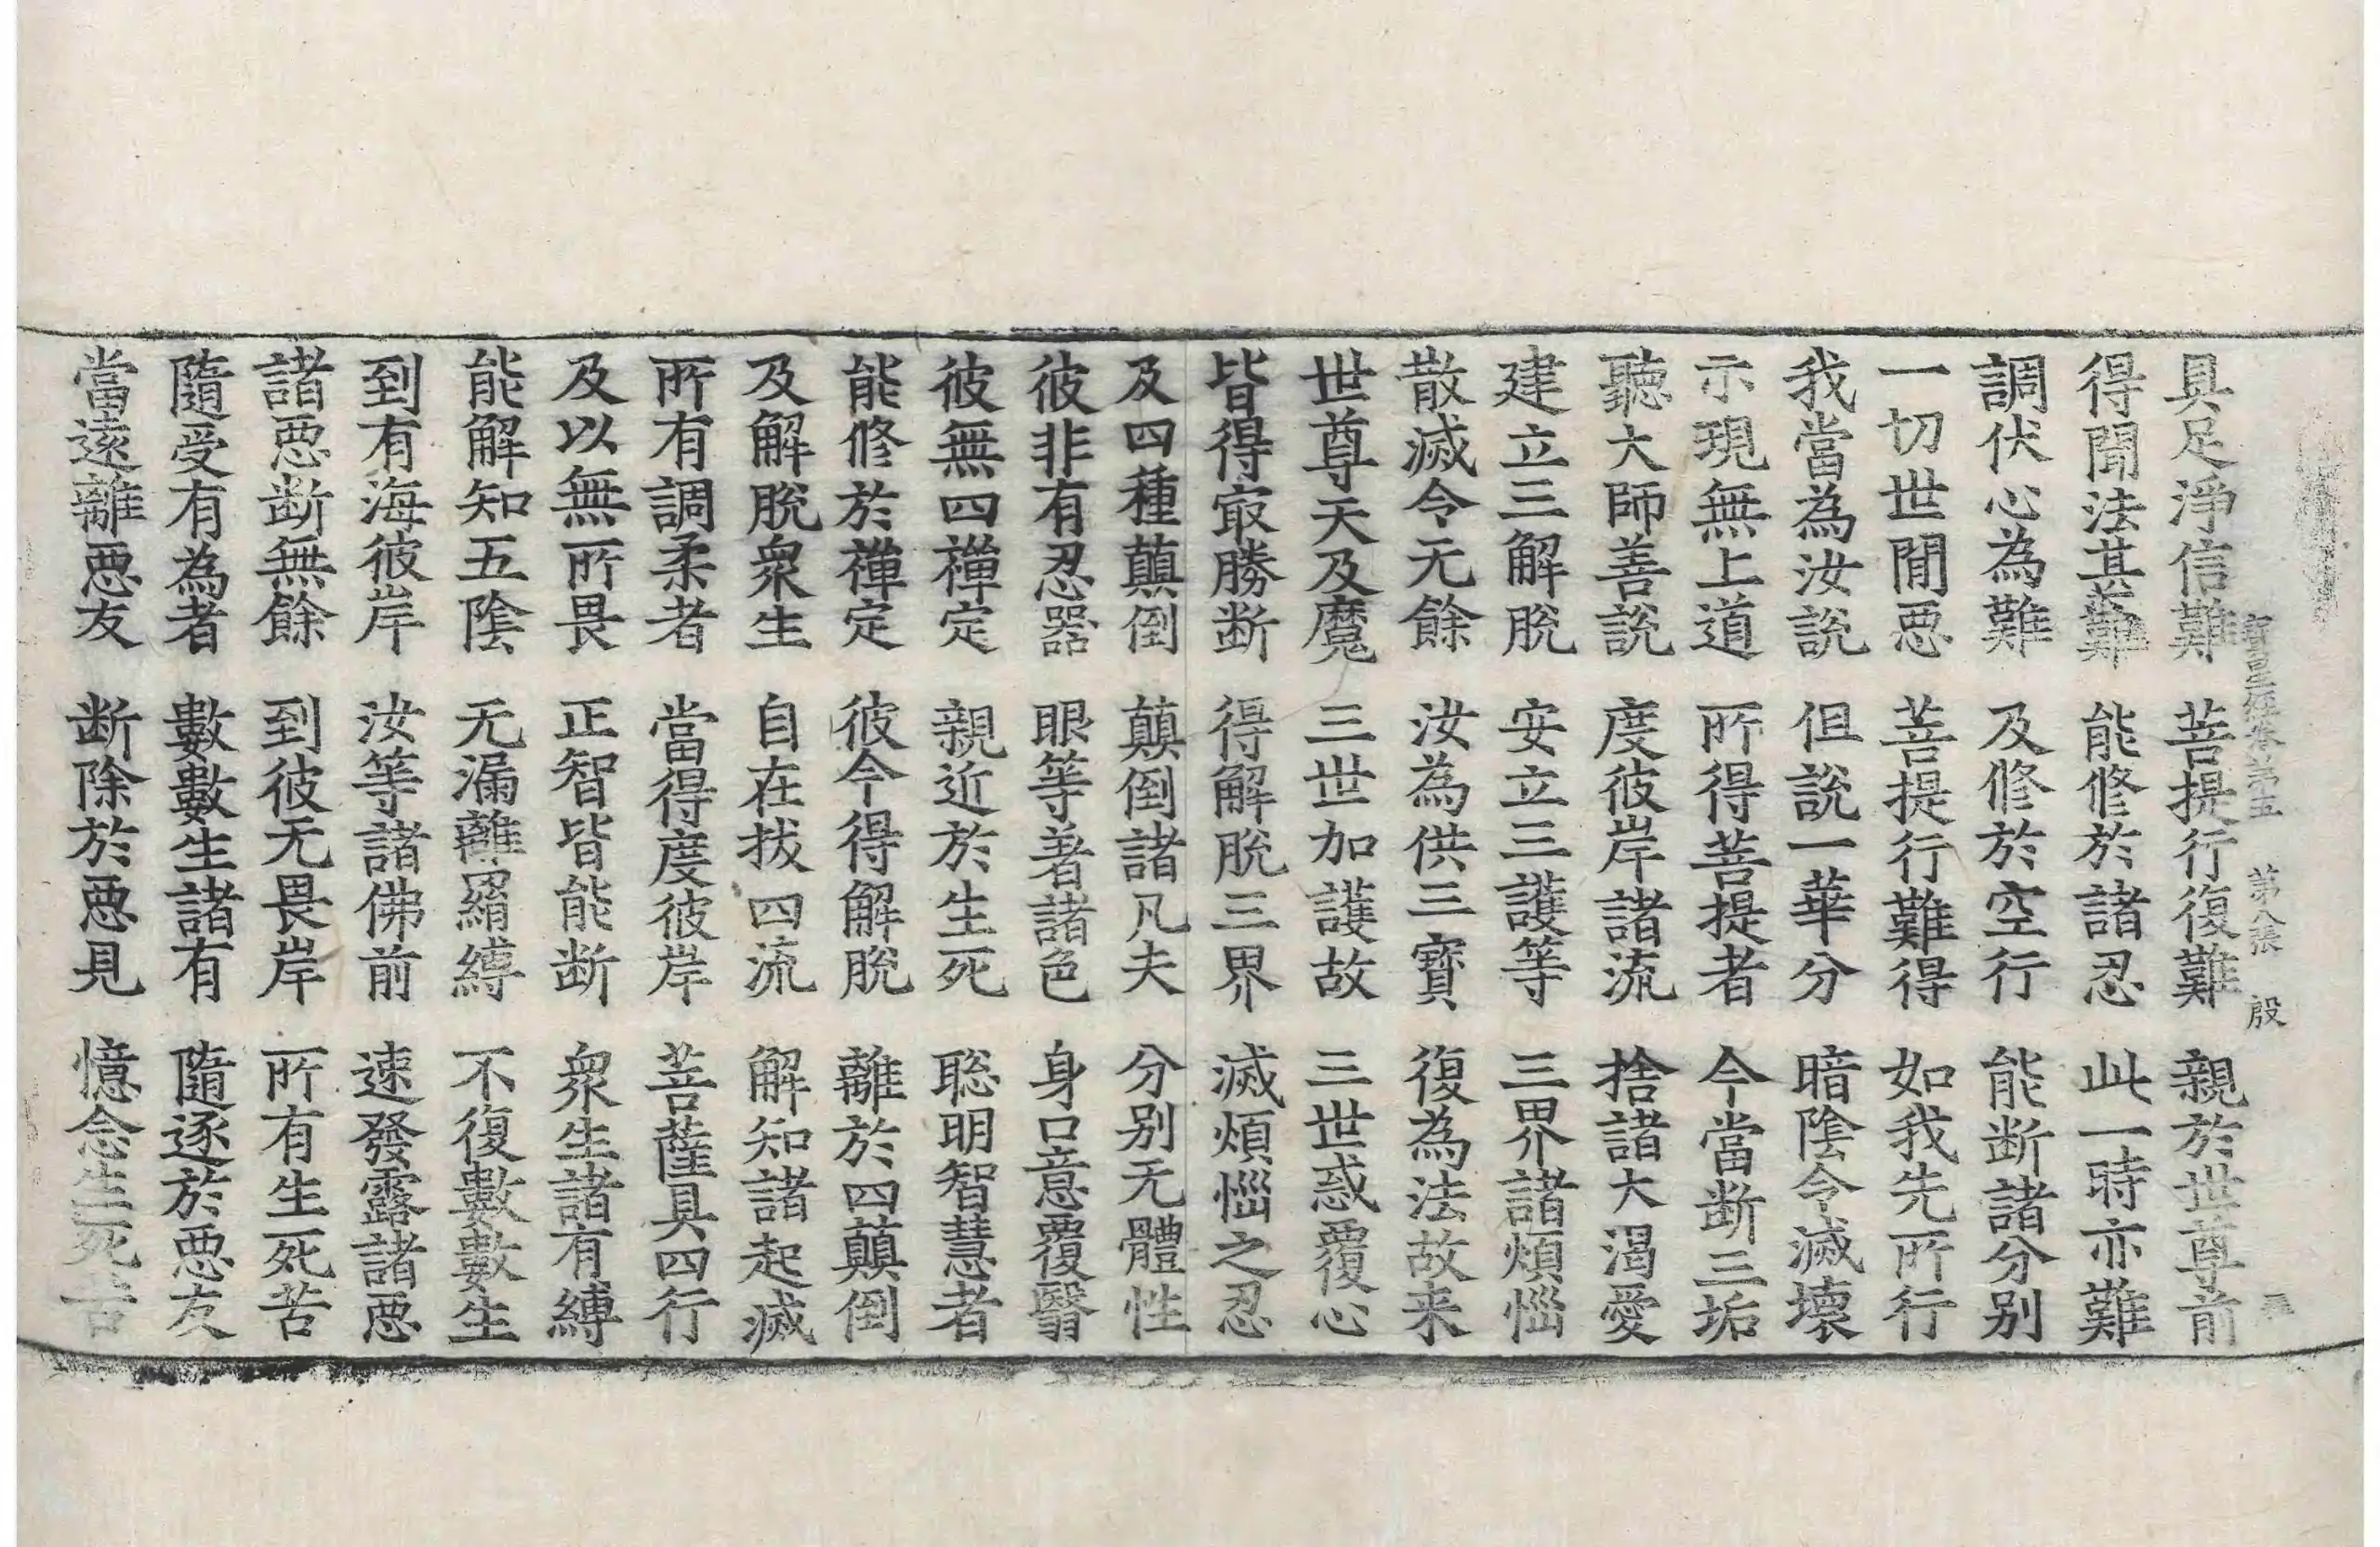 寶星經卷第五 第八張 殷
具足淨信難 菩提行復難 親於世尊前
得聞法甚難 能修於諸忍 此一時亦難
調伏心為難 及修於空行 能断諸分别
一切世間惡 菩提行難得 如我先所行
我當為汝説 但説一華分 暗陰令滅壞
示現無上道 所得菩提者 今當断三垢
聽大師善説 度彼岸諸流 捨諸大渴愛
建立三解脫 安立三護等 三界諸煩惱
散滅令无餘 汝為供三寶 復為法故来
世尊天及魔 三世加護故 三世惑覆心
皆得㝡勝断 得解脫三界 滅煩惱之忍
及四種顛倒 顛倒諸凡夫 分别无體性
彼非有忍器 眼等著諸色 身口意覆翳
彼無四禪定 親近於生死 聡明智慧者
能修於禪定 彼今得解脫 離於四顛倒
及解脫衆生 自在拔四流 解知諸起滅
所有調柔者 當得度彼岸 菩薩具四行
及以無所畏 正智皆能断 衆生諸有縛
能解知五陰 无漏離羂縛 不復數數生
到有海彼岸 汝等諸佛前 速發露諸惡
諸惡断無餘 到彼无畏岸 所有生死苦
隨受有為者 數數生諸有 隨逐於惡友
當遠離惡友 断除於惡見 憶念生死苦